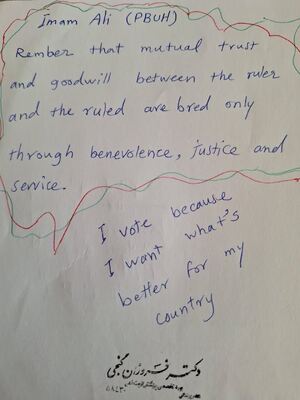 Imam Ali (PBUH)
Rember that mutual trust
and goodwill between the ruler
and the ruled are bred only
through benevolence, justice and
service.
I vote because
I want what's
better for my
country
دکتر